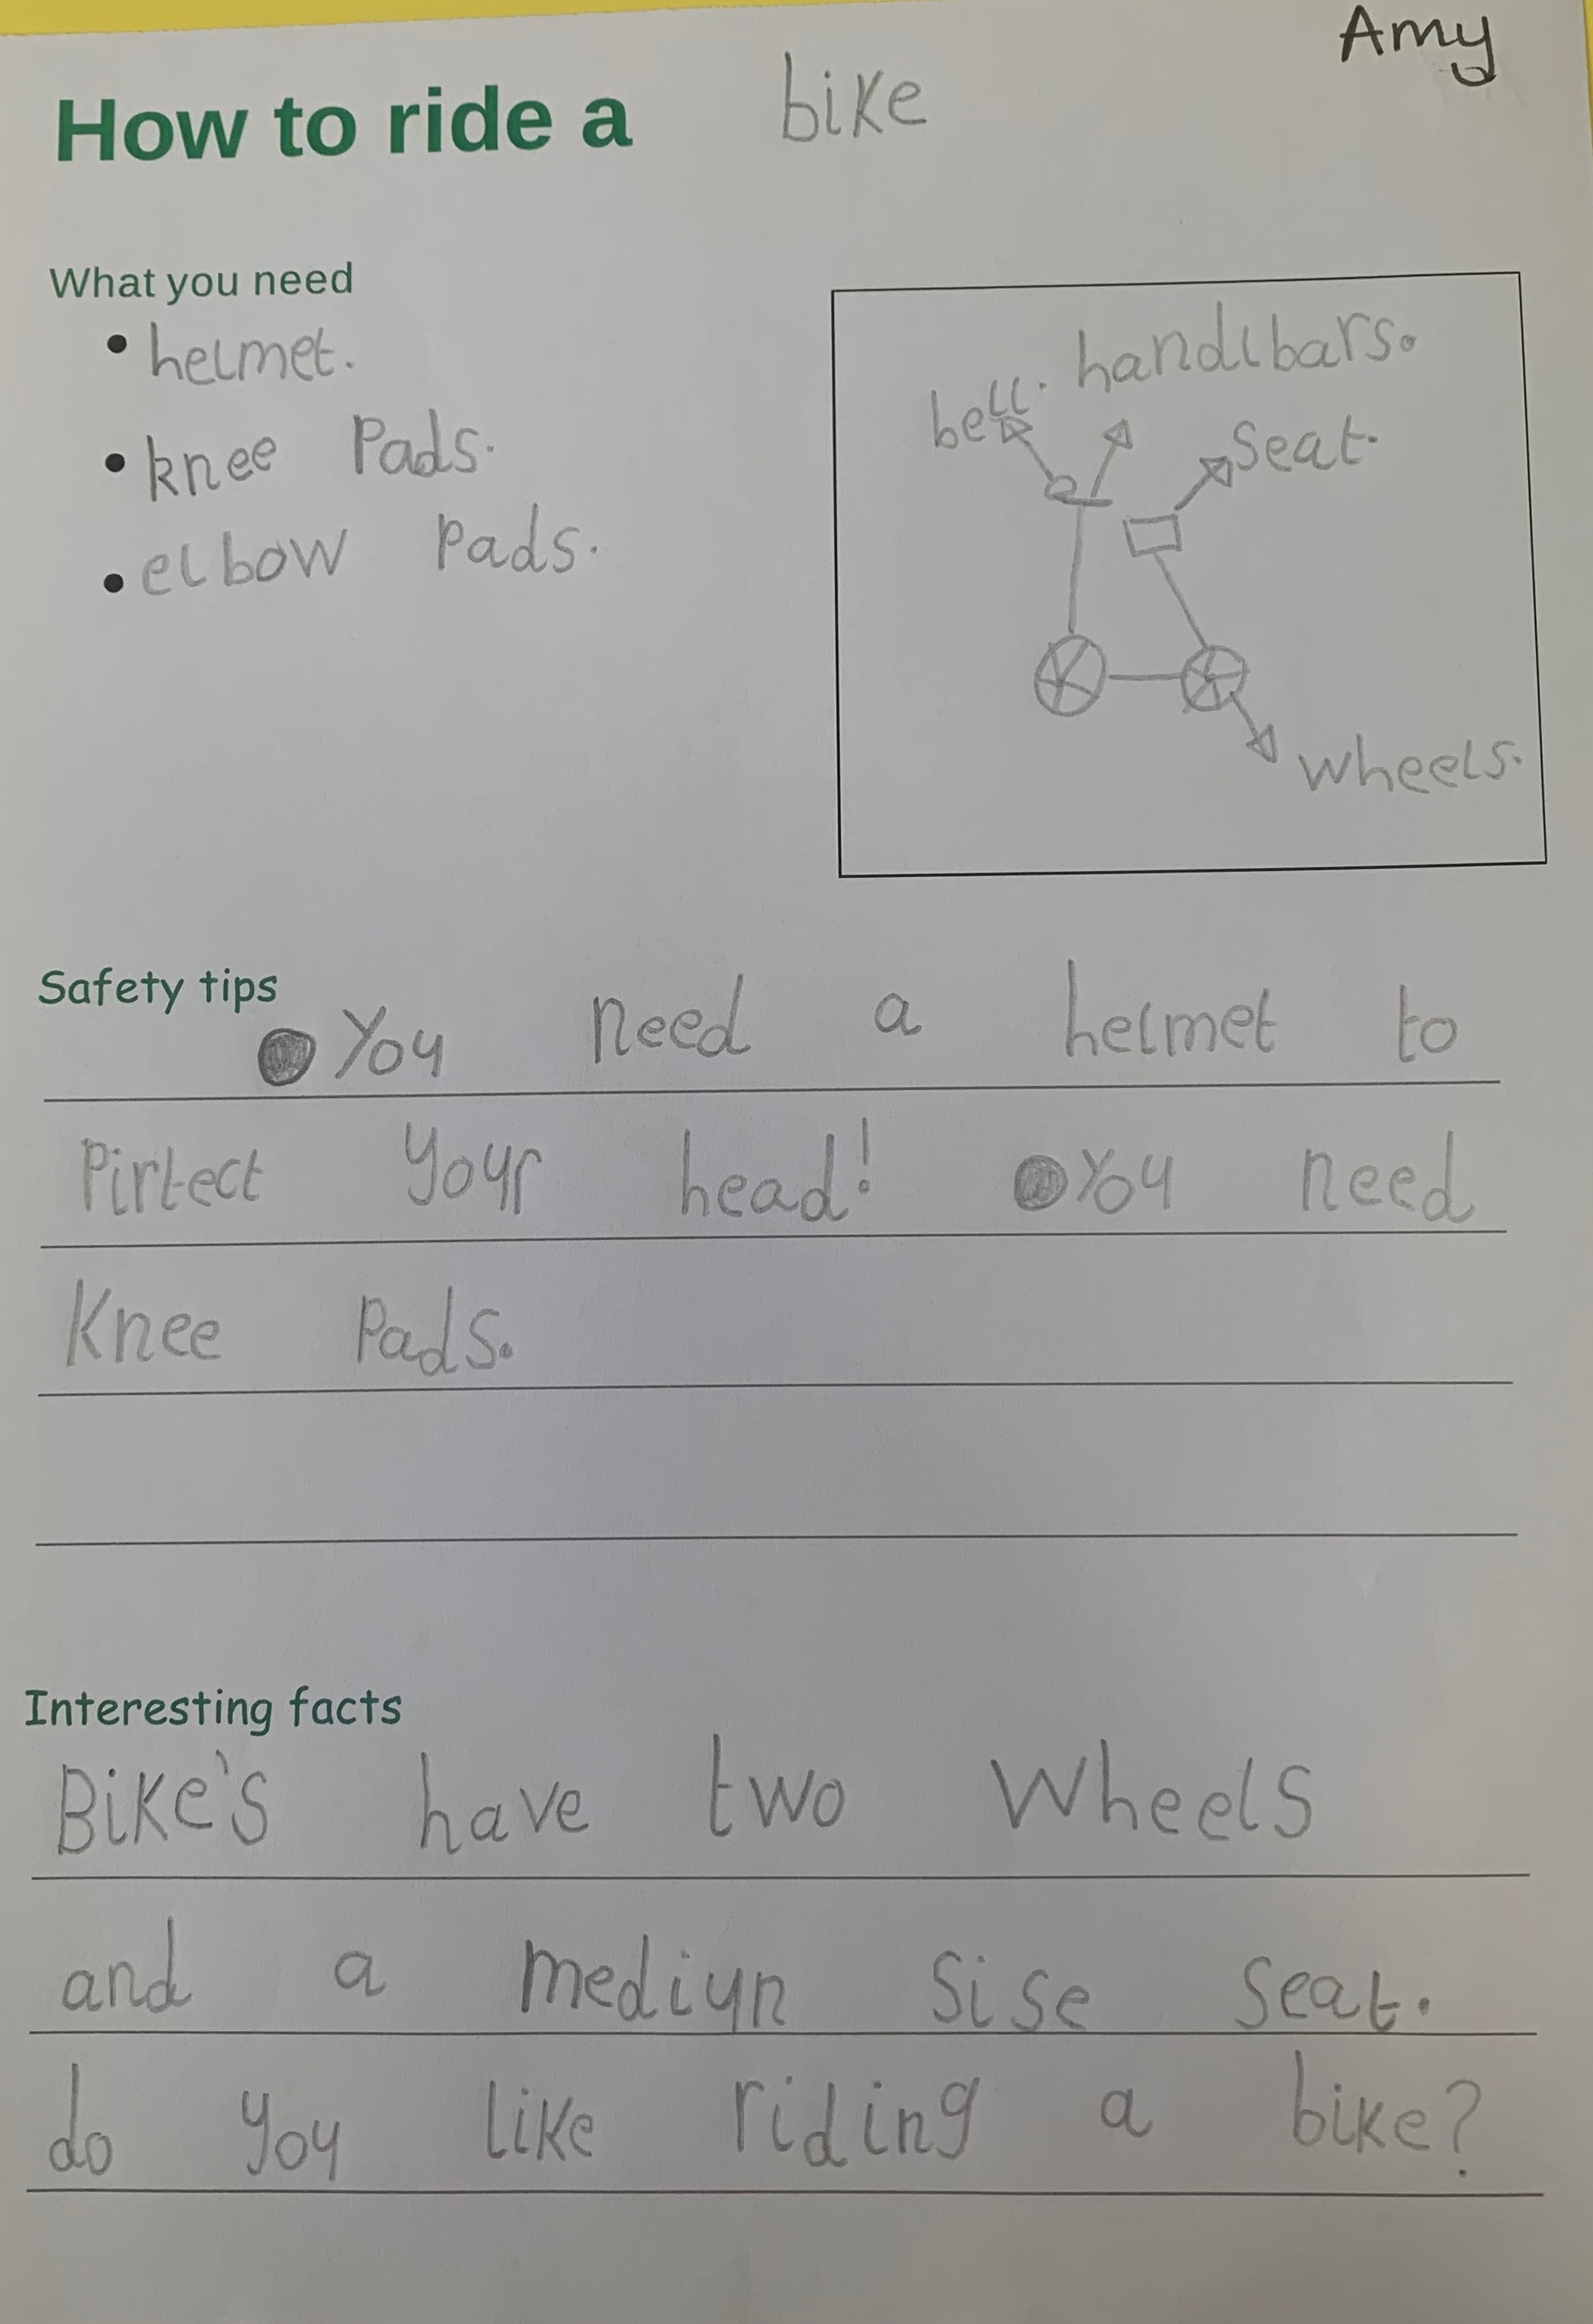 Amy
How to ride a bike
What you need
• helmet.
• knee Pads.
• elbow Pads.
handlbars.
bell.
Seat.
wheels.
Safety tips
● You need a helmet to
Pirtect your head! ● You need
Knee Pads.
Interesting facts
Bike's have two wheels
and a mediun Sise Seat.
do you like riding a bike?